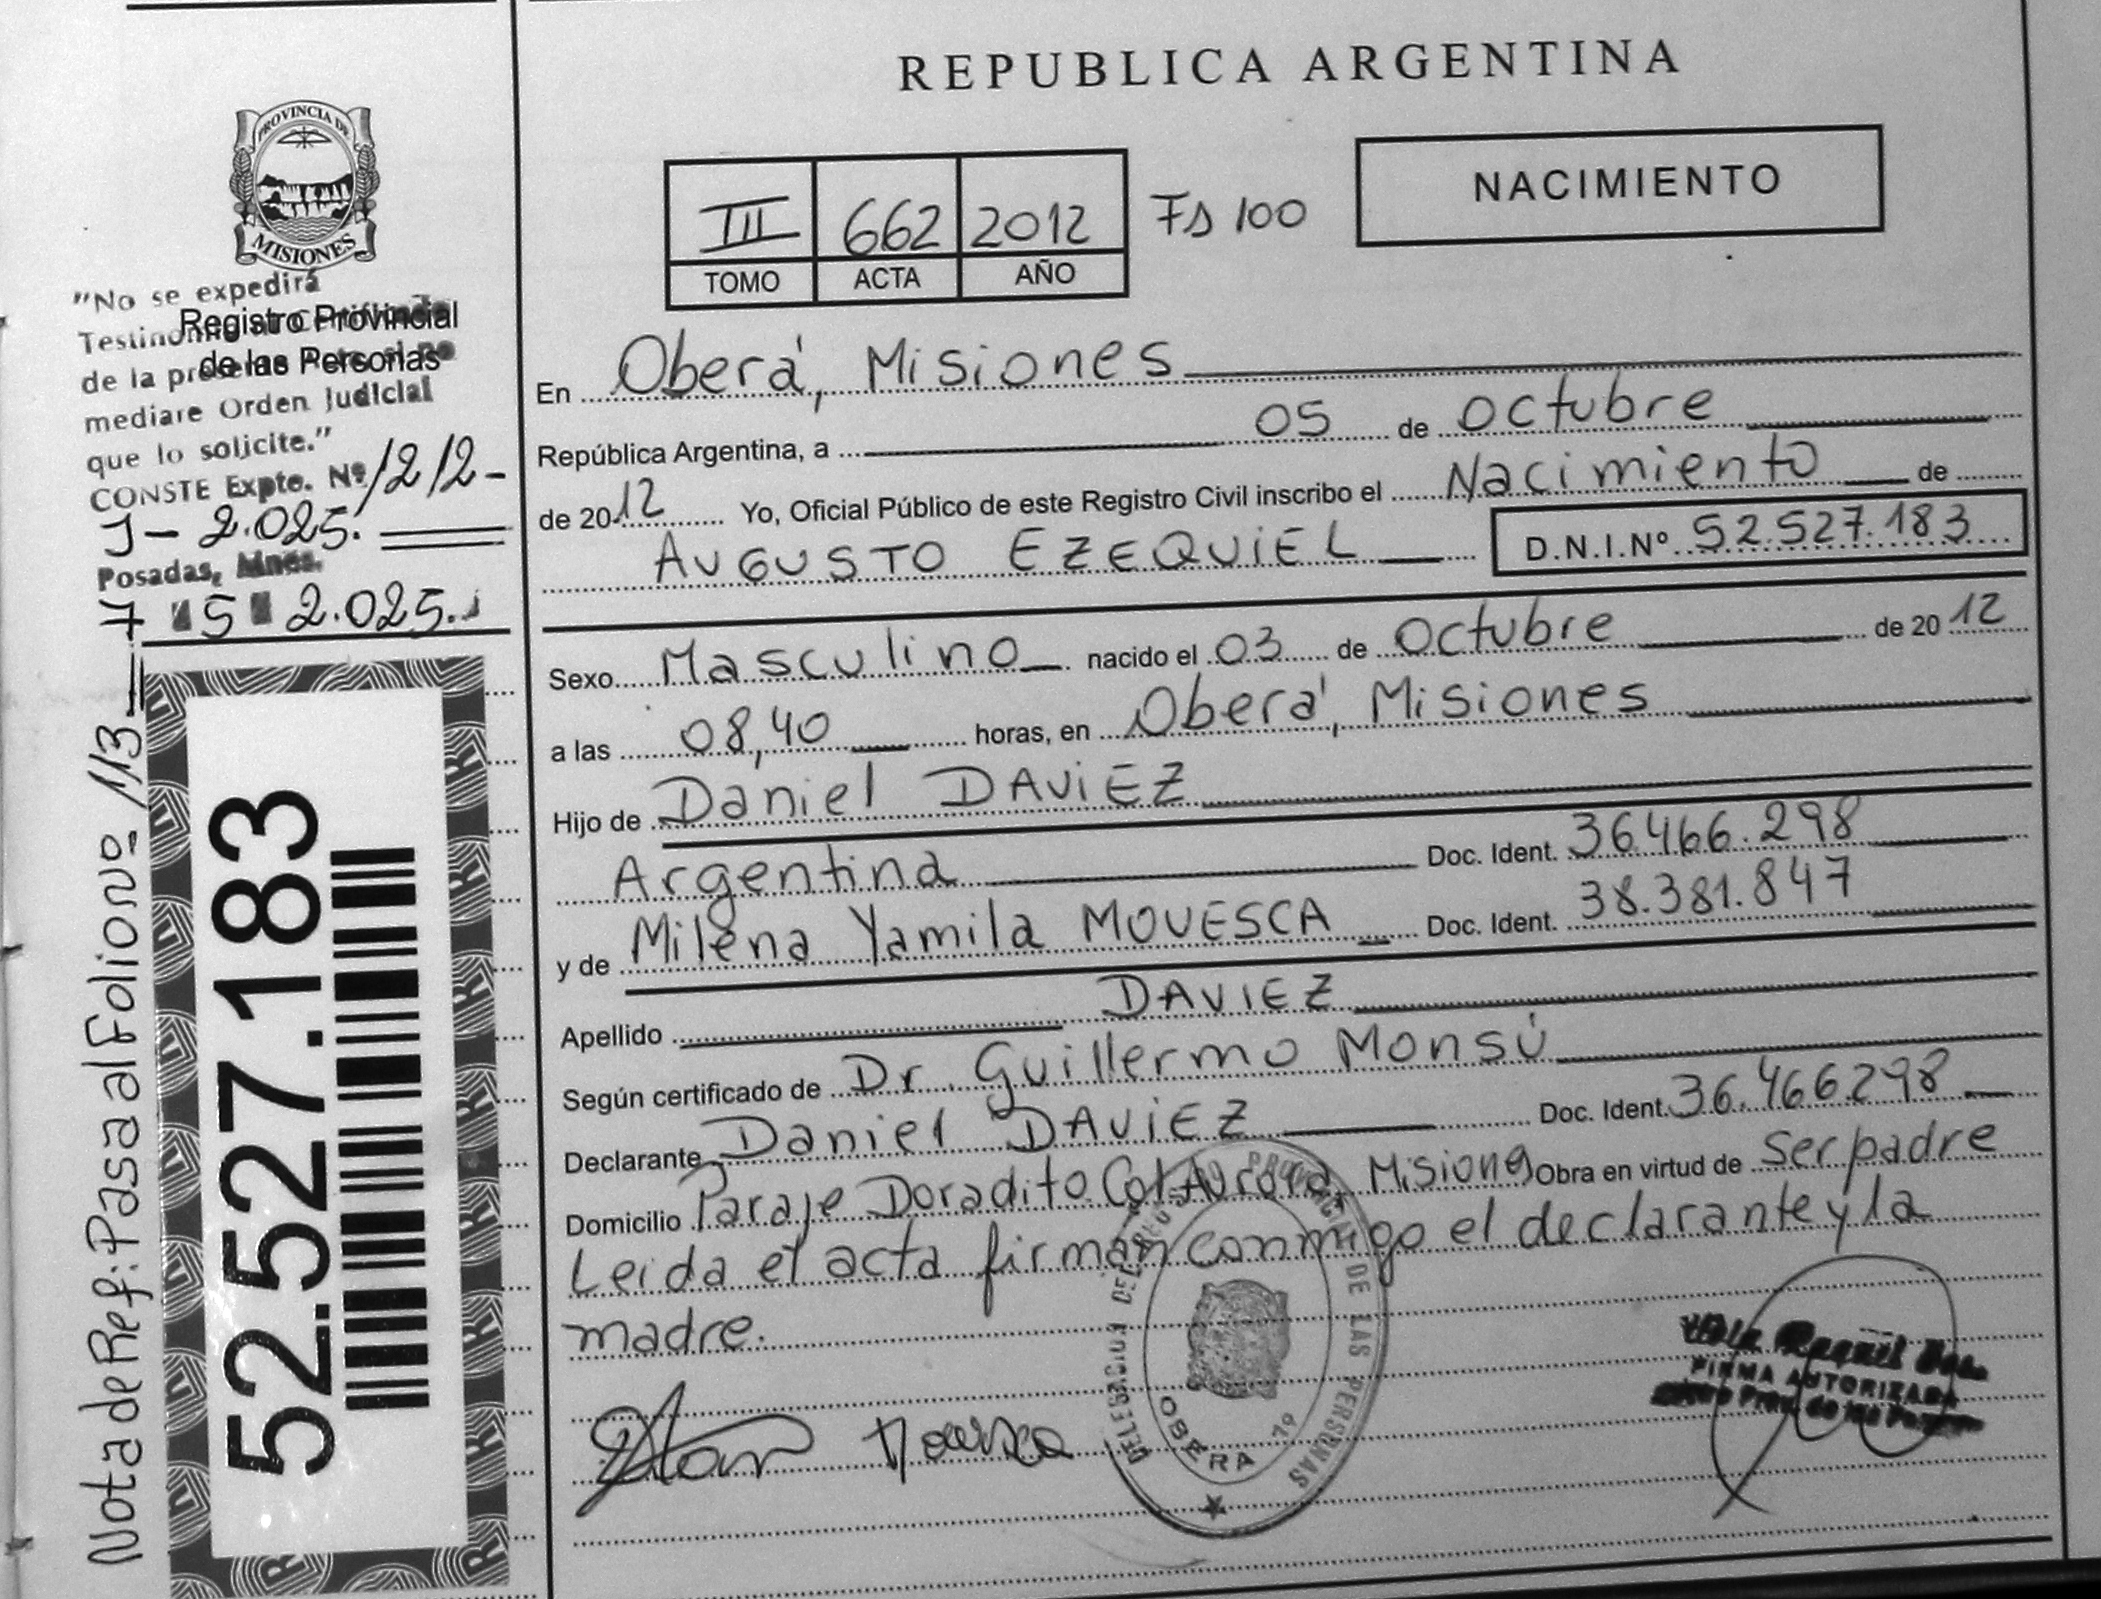 REPUBLICA ARGENTINA
PROVINCIA DE
MISIONES
III 662 2012 Fs 100
TOMO ACTA AÑO
NACIMIENTO
"No se expedirá
Registro Provincial
Testimonio
de las Personas
de la presente
mediare Orden Judicial
que lo solicite."
CONSTE Expte. Nº 1212-
J- 2.025.
Posadas, Mnes.
7 5 2.025.
Nota de Ref: Pasa al Folio Nº 113
52.527.183
En Oberá, Misiones
República Argentina, a 05 de octubre
de 2012 Yo, Oficial Público de este Registro Civil inscribo el Nacimiento de
AUGUSTO EZEQUIEL D.N.I.Nº 52.527.183
Sexo Masculino nacido el 03 de octubre de 2012
a las 08,40 horas, en Oberá, Misiones
Hijo de Daniel DAVIEZ
Argentina Doc. Ident. 36.466.298
y de Milena Yamila MOVESCA Doc. Ident. 38.381.847
Apellido DAVIEZ
Según certificado de Dr. Guillermo Monsú
Declarante Daniel DAVIEZ Doc. Ident. 36.466.298
Domicilio Paraje Doradito Col Aurora, Misiones Obra en virtud de ser padre
Leída el acta firman conmigo el declarante y la
madre.
DELEGACION DEL REGISTRO PROVINCIAL DE LAS PERSONAS
OBERA
Raquel
FIRMA AUTORIZADA
Prov. de las